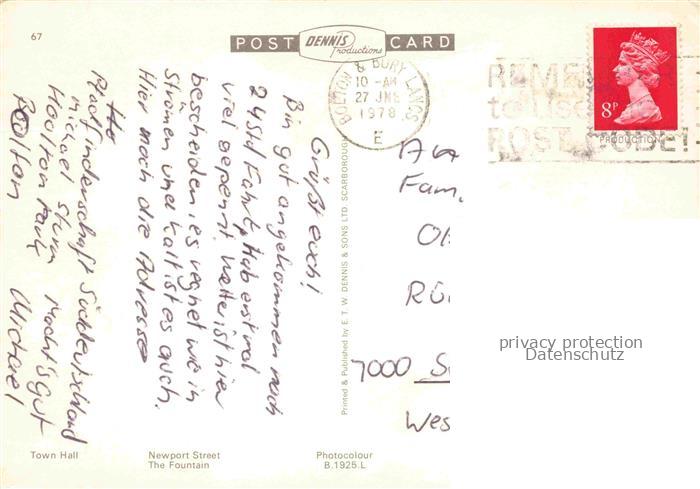 67
POST DENNIS Productions CARD
BOLTON & BURY LANCS
10 - AM
27 JNE
1978
E
8P
to use
POST
PRODUCTION
Grüßt euch!
Bin gut angekommen nach
24 Std Fahrt, Hab erst mal
viel gepennt. Wetter ist hier
bescheiden, es regnet wie in
Strömen und kalt ist es auch.
Hier noch die Adresse
Pfadfinderschaft Süddeutschland
Michael Sturm
Houlton Park
Bolton
Macht's gut
Michael
Fam.
7000
Wes
Printed & Published by E. T. W. DENNIS & SONS LTD. SCARBOROUGH
privacy protection
Datenschutz
Town Hall
Newport Street
The Fountain
Photocolour
B.1925.L